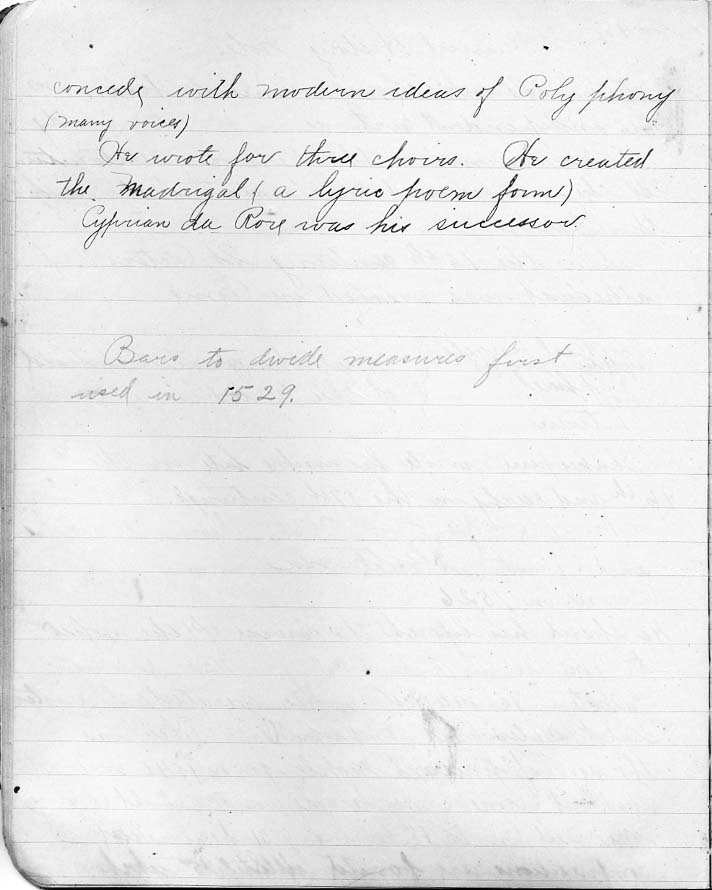 concede with modern ideas of Poly phony
(many voices)
He wrote for three choirs. He created
the Madrigal (a lyric poem form)
Cyprian da Rore was his successor.
Bars to divide measures first
used in 1529.